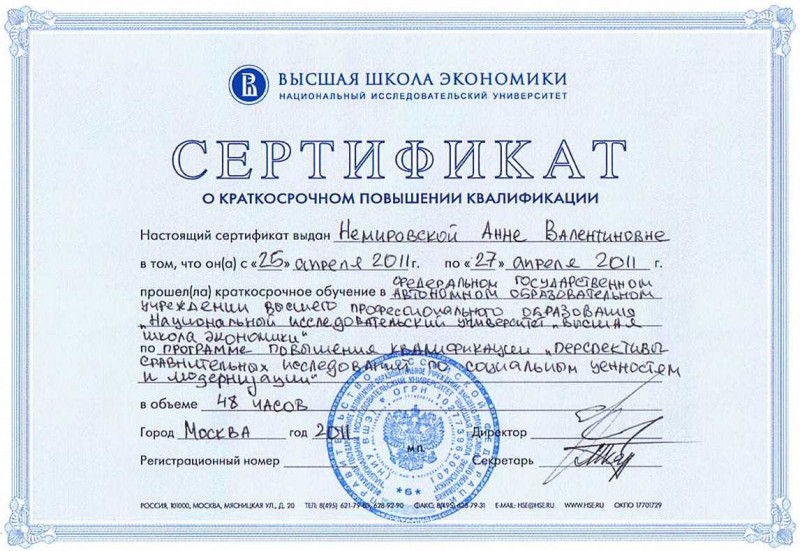 ВЫСШАЯ ШКОЛА ЭКОНОМИКИ
НАЦИОНАЛЬНЫЙ ИССЛЕДОВАТЕЛЬСКИЙ УНИВЕРСИТЕТ
СЕРТИФИКАТ
О КРАТКОСРОЧНОМ ПОВЫШЕНИИ КВАЛИФИКАЦИИ
Настоящий сертификат выдан Немировской Анне Валентиновне
в том, что он(а) с «25» апреля 2011г. по «27» апреля 2011 г.
прошел(ла) краткосрочное обучение в федеральном государственном
автономном образовательном
учреждении высшего профессионального образования
„Национальный исследовательский университет „Высшая
школа экономики"
по программе повышения квалификации „Перспективы
сравнительных исследований по социальным ценностям
и модернизации"
в объеме 48 часов
Город Москва год 2011 Директор
М.П.
Регистрационный номер Секретарь
РОССИЯ, 101000, МОСКВА, МЯСНИЦКАЯ УЛ., Д. 20 ТЕЛ: 8(495) 628-92-90 ФАКС: 8(495) 628-79-31 E-MAIL: HSE@HSE.RU WWW.HSE.RU ОКПО 17701729